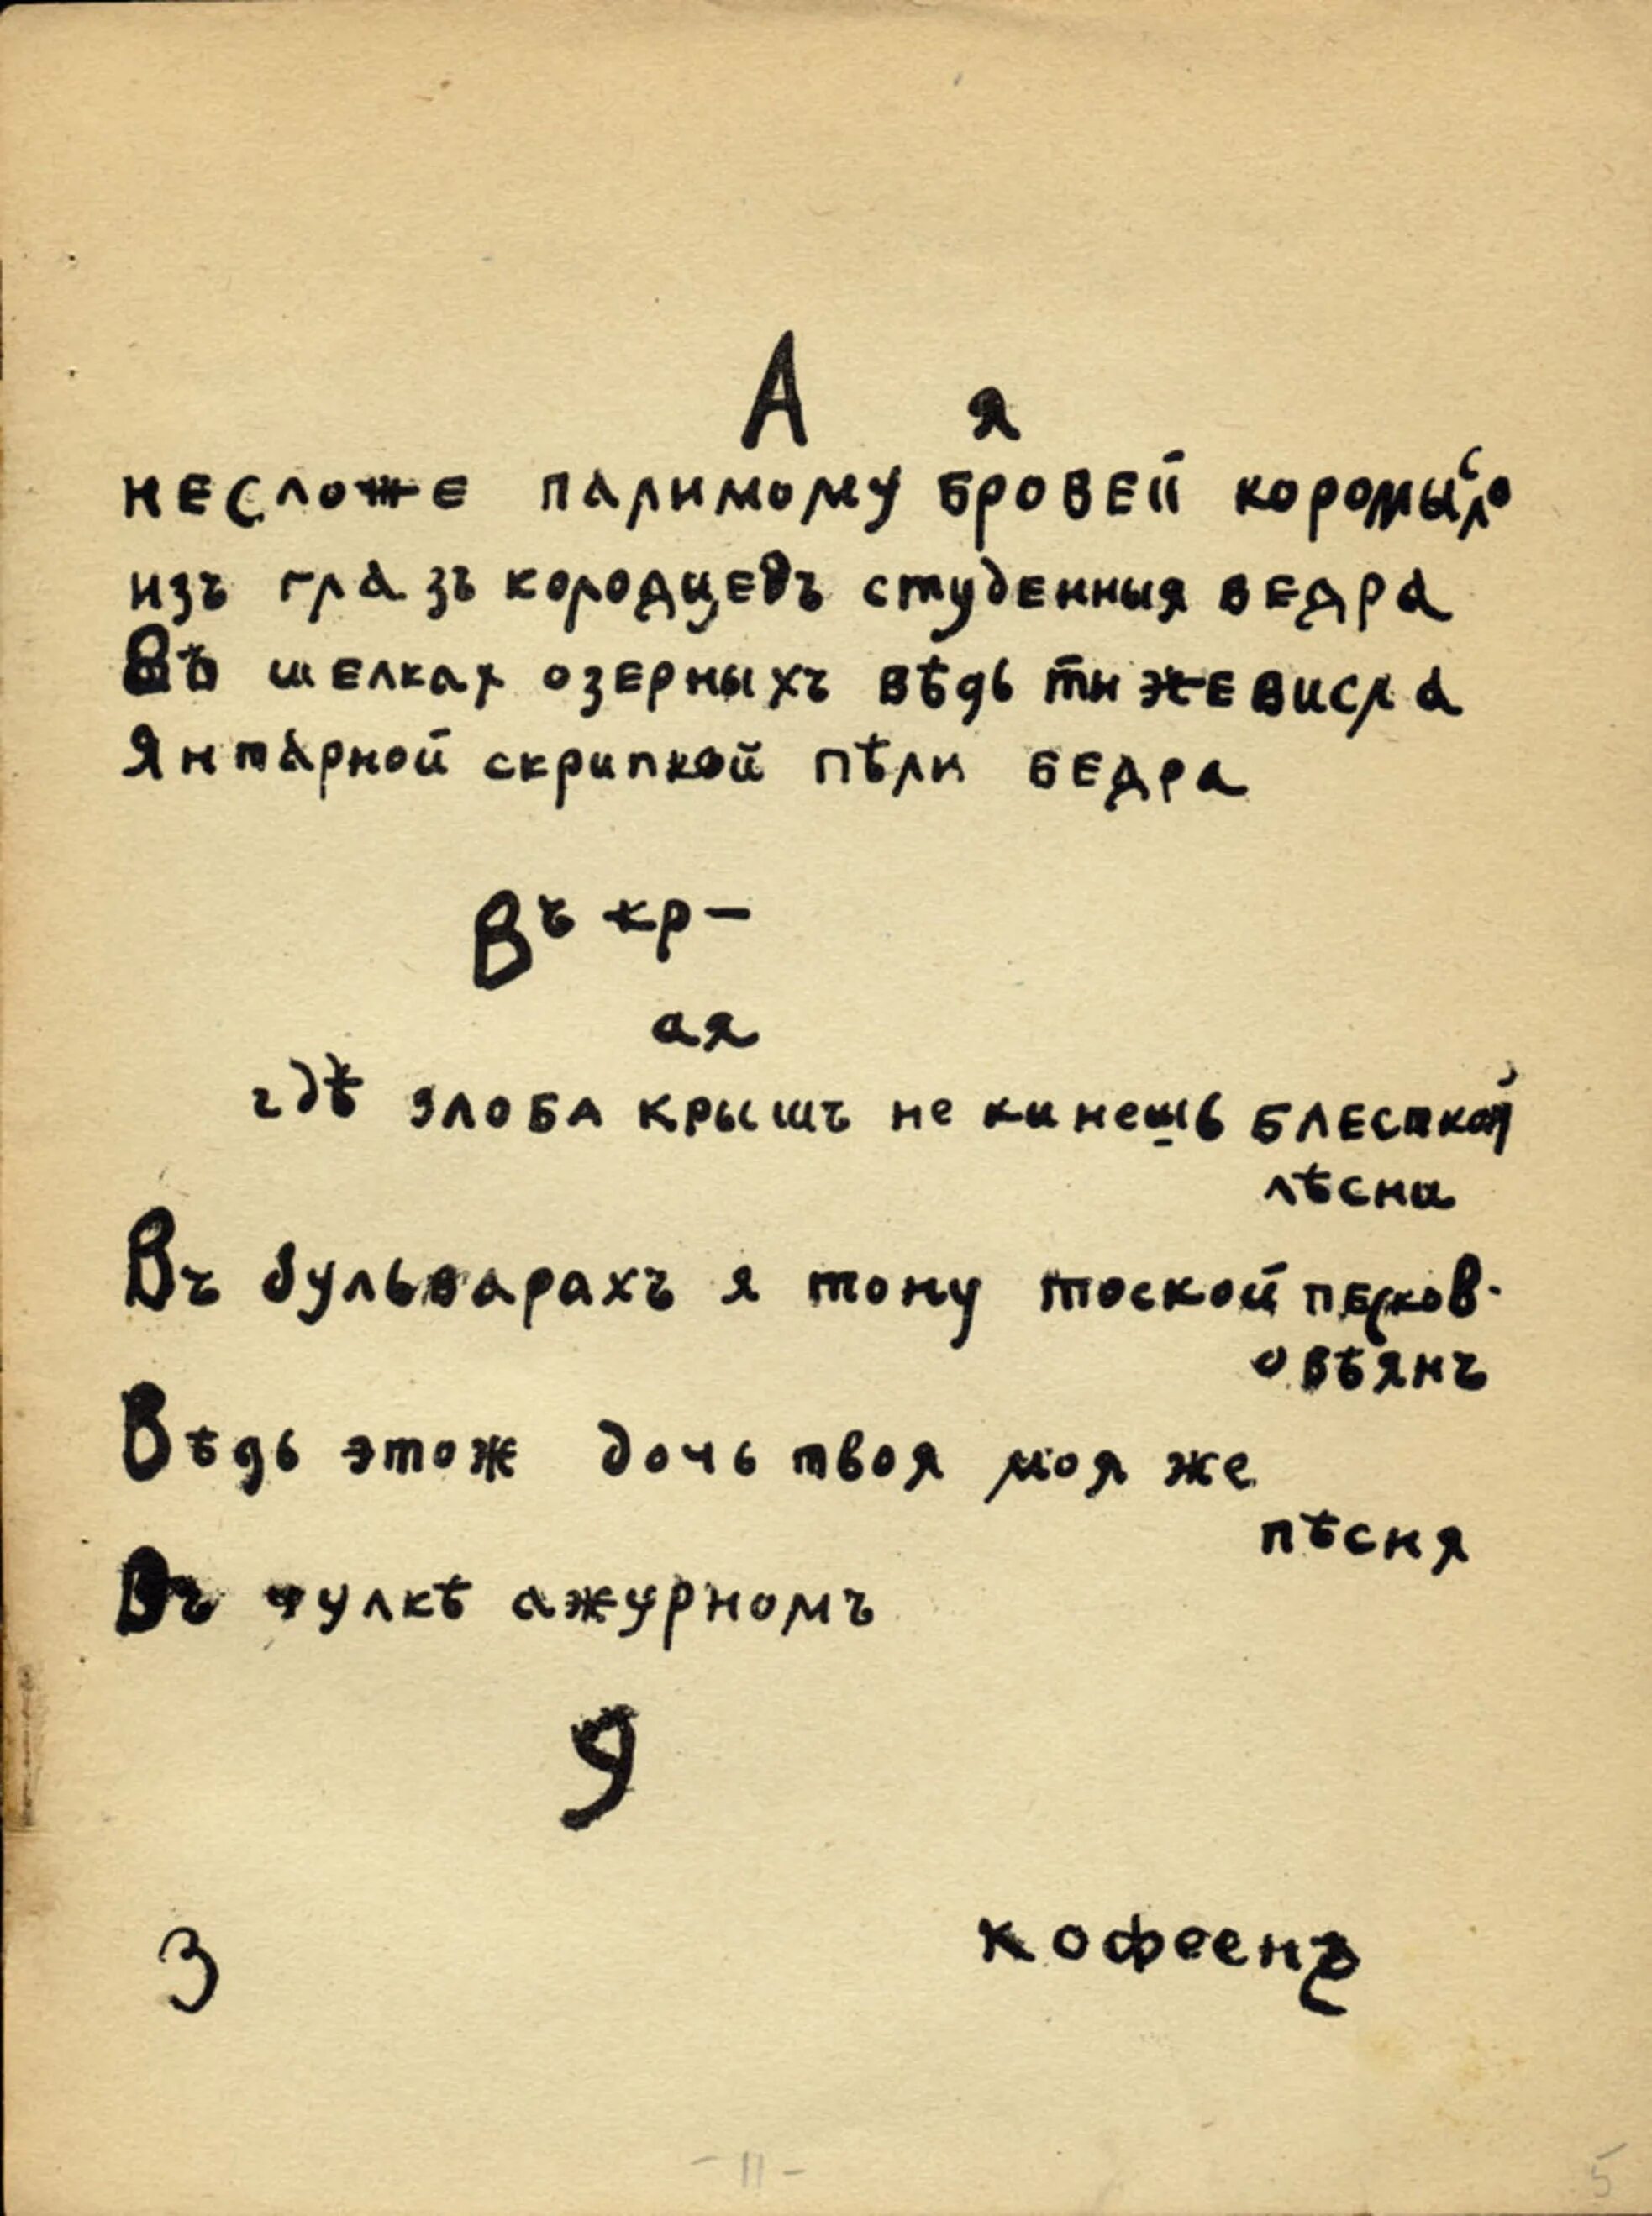 А я
НЕСЛОЖЕ ПАЛИМОМУ БРОВЕЙ КОРОМЫСЛО
ИЗЪ ГЛАЗЪ КОЛОДЦЕВЪ СТУДЕННЫЯ ВЕДРА
ВЪ ШЕЛКАХ ОЗЕРНЫХЪ ВѢДЬ ТЫ ЖЕ ВИСЛА
ЯНТАРНОЙ СКРИПКОЙ ПѢЛИ БЕДРА
Въ кр-
ая
гдѣ злоба крышъ не кинешь блесткой
лѣсни
Въ бульварахъ я тону тоской
овѣянъ
Вѣдь этож дочь твоя моя же
пѣсня
Въ чулкѣ ажурномъ
У
3 кофеенъ
-11-
5